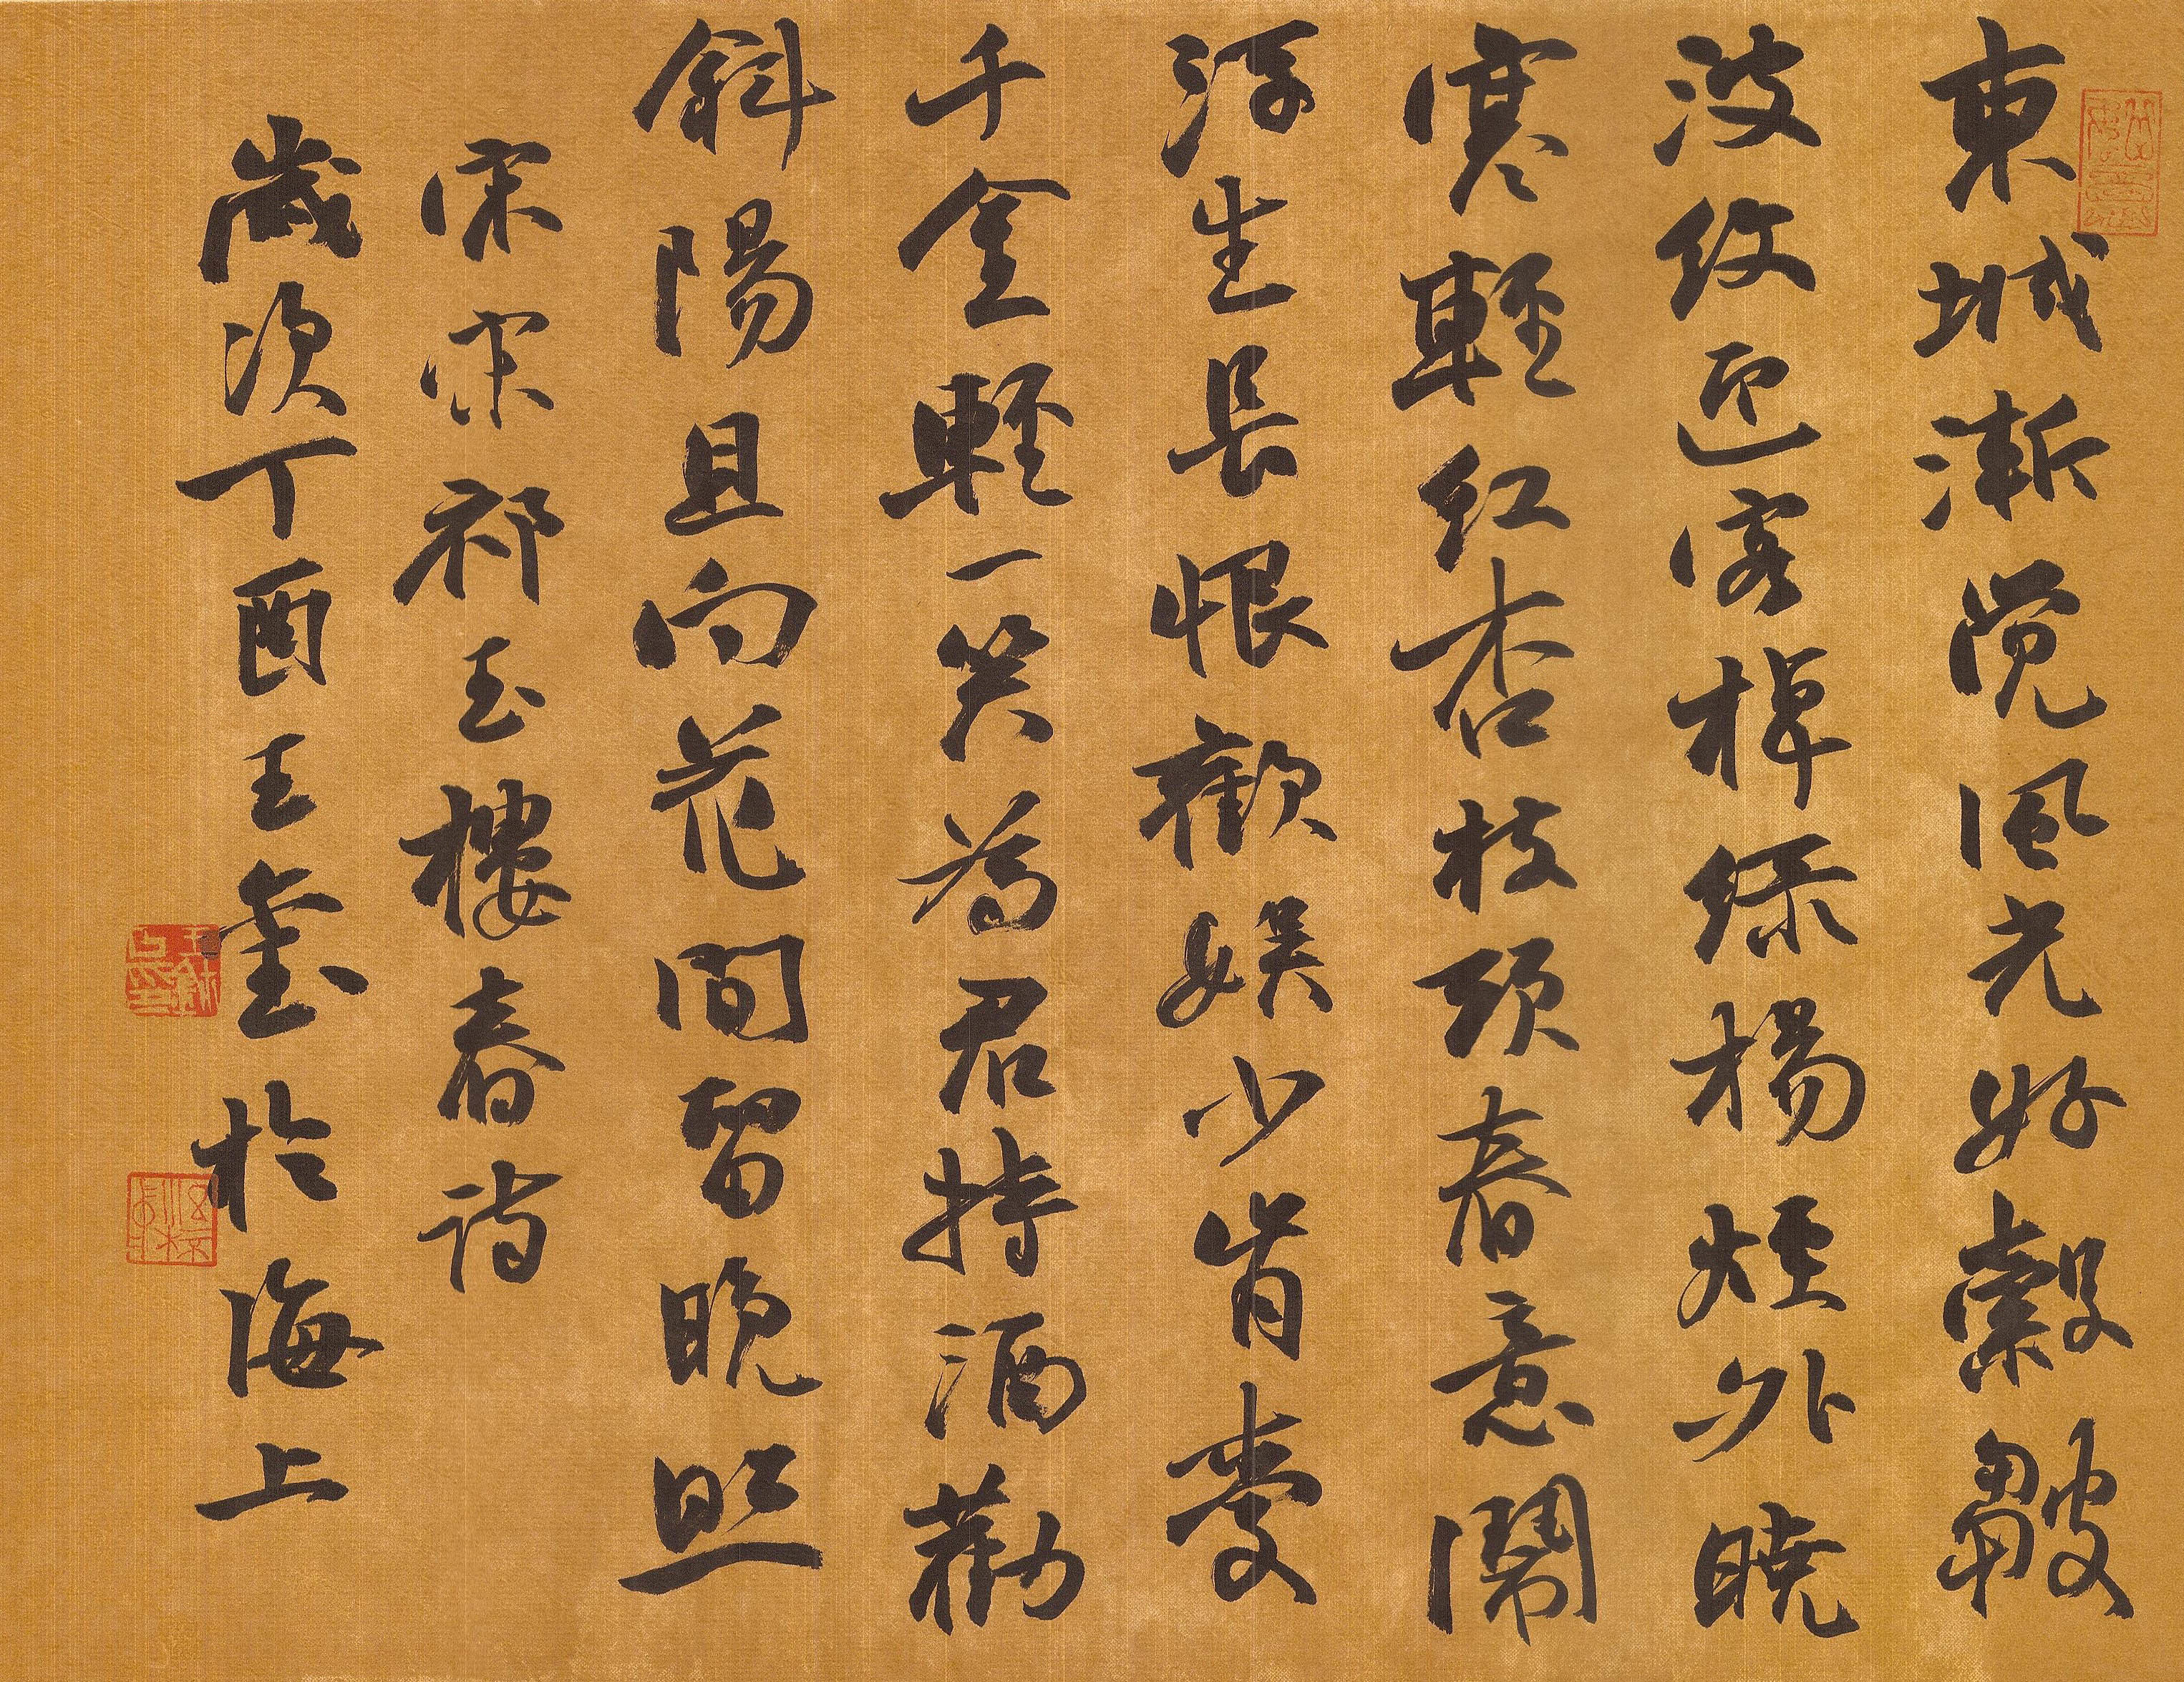 東城漸覺風光好縠皺
波紋迎客棹綠楊煙外曉
寒輕紅杏枝頭春意鬧
浮生長恨歡娛少肯愛
千金輕一笑為君持酒勸
斜陽且向花間留晚照
宋宋祁玉樓春詩
歲次丁酉王
於海上